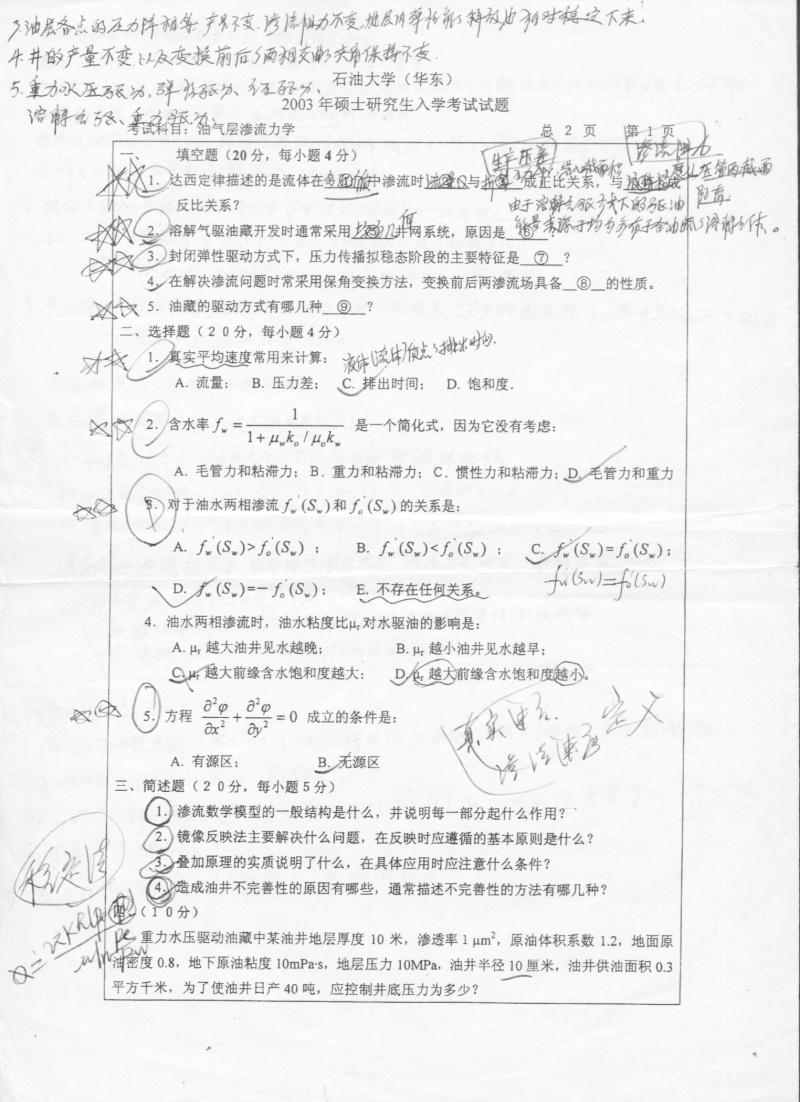 3.油层各点的压力降相等.产量不变.渗流阻力不变.地层内弹性能释放也相对稳定下来.
4.井的产量不变以及变换前后两相交曲线夹角保持不变.
5.重力水压驱动、弹性驱动、气压驱动、
溶解气驱、重力驱动.
石油大学(华东)
2003年硕士研究生入学考试试题
考试科目:油气层渗流力学 总 2 页 第 1 页
生产压差 渗流阻力
一 填空题(20分,每小题4分)
1. 达西定律描述的是流体在 中渗流时 与 成正比关系,与
反比关系?
由于溶解气驱方式下的驱油
2. 溶解气驱油藏开发时通常采用 井网系统,原因是 ⑥ ?
3. 封闭弹性驱动方式下,压力传播拟稳态阶段的主要特征是 ⑦ ?
4. 在解决渗流问题时常采用保角变换方法,变换前后两渗流场具备 ⑧ 的性质。
5. 油藏的驱动方式有哪几种 ⑨ ?
二、选择题(20分,每小题4分)
1. 真实平均速度常用来计算: 液体(流体)质点 排出时间.
A. 流量; B. 压力差; C. 排出时间; D. 饱和度.
2. 含水率 f_w = 1 / (1 + μ_w k_o / μ_o k_w) 是一个简化式,因为它没有考虑:
A. 毛管力和粘滞力; B. 重力和粘滞力; C. 惯性力和粘滞力; D. 毛管力和重力
3. 对于油水两相渗流 f_w'(S_w) 和 f_o'(S_w) 的关系是:
A. f_w'(S_w)>f_o'(S_w) ; B. f_w'(S_w)<f_o'(S_w) ; C. f_w'(S_w)=f_o'(S_w);
f_w'(S_w)=f_o'(S_w)
D. f_w'(S_w)=-f_o'(S_w); E. 不存在任何关系。
4. 油水两相渗流时,油水粘度比μr对水驱油的影响是:
A. μr 越大油井见水越晚; B. μr 越小油井见水越早;
C. μr 越大前缘含水饱和度越大; D. μr 越大前缘含水饱和度越小。
5. 方程 ∂²φ/∂x² + ∂²φ/∂y² = 0 成立的条件是:
真实速度
渗流速度 定义
A. 有源区; B. 无源区
三、简述题(20分,每小题5分)
1. 渗流数学模型的一般结构是什么,并说明每一部分起什么作用?
2. 镜像反映法主要解决什么问题,在反映时应遵循的基本原则是什么?
3. 叠加原理的实质说明了什么,在具体应用时应注意什么条件?
4. 造成油井不完善性的原因有哪些,通常描述不完善性的方法有哪几种?
稳定流
四、(10分)
重力水压驱动油藏中某油井地层厚度 10 米,渗透率 1 μm²,原油体积系数 1.2,地面原
油密度 0.8,地下原油粘度 10mPa·s,地层压力 10MPa,油井半径 10 厘米,油井供油面积 0.3
平方千米,为了使油井日产 40 吨,应控制井底压力为多少?